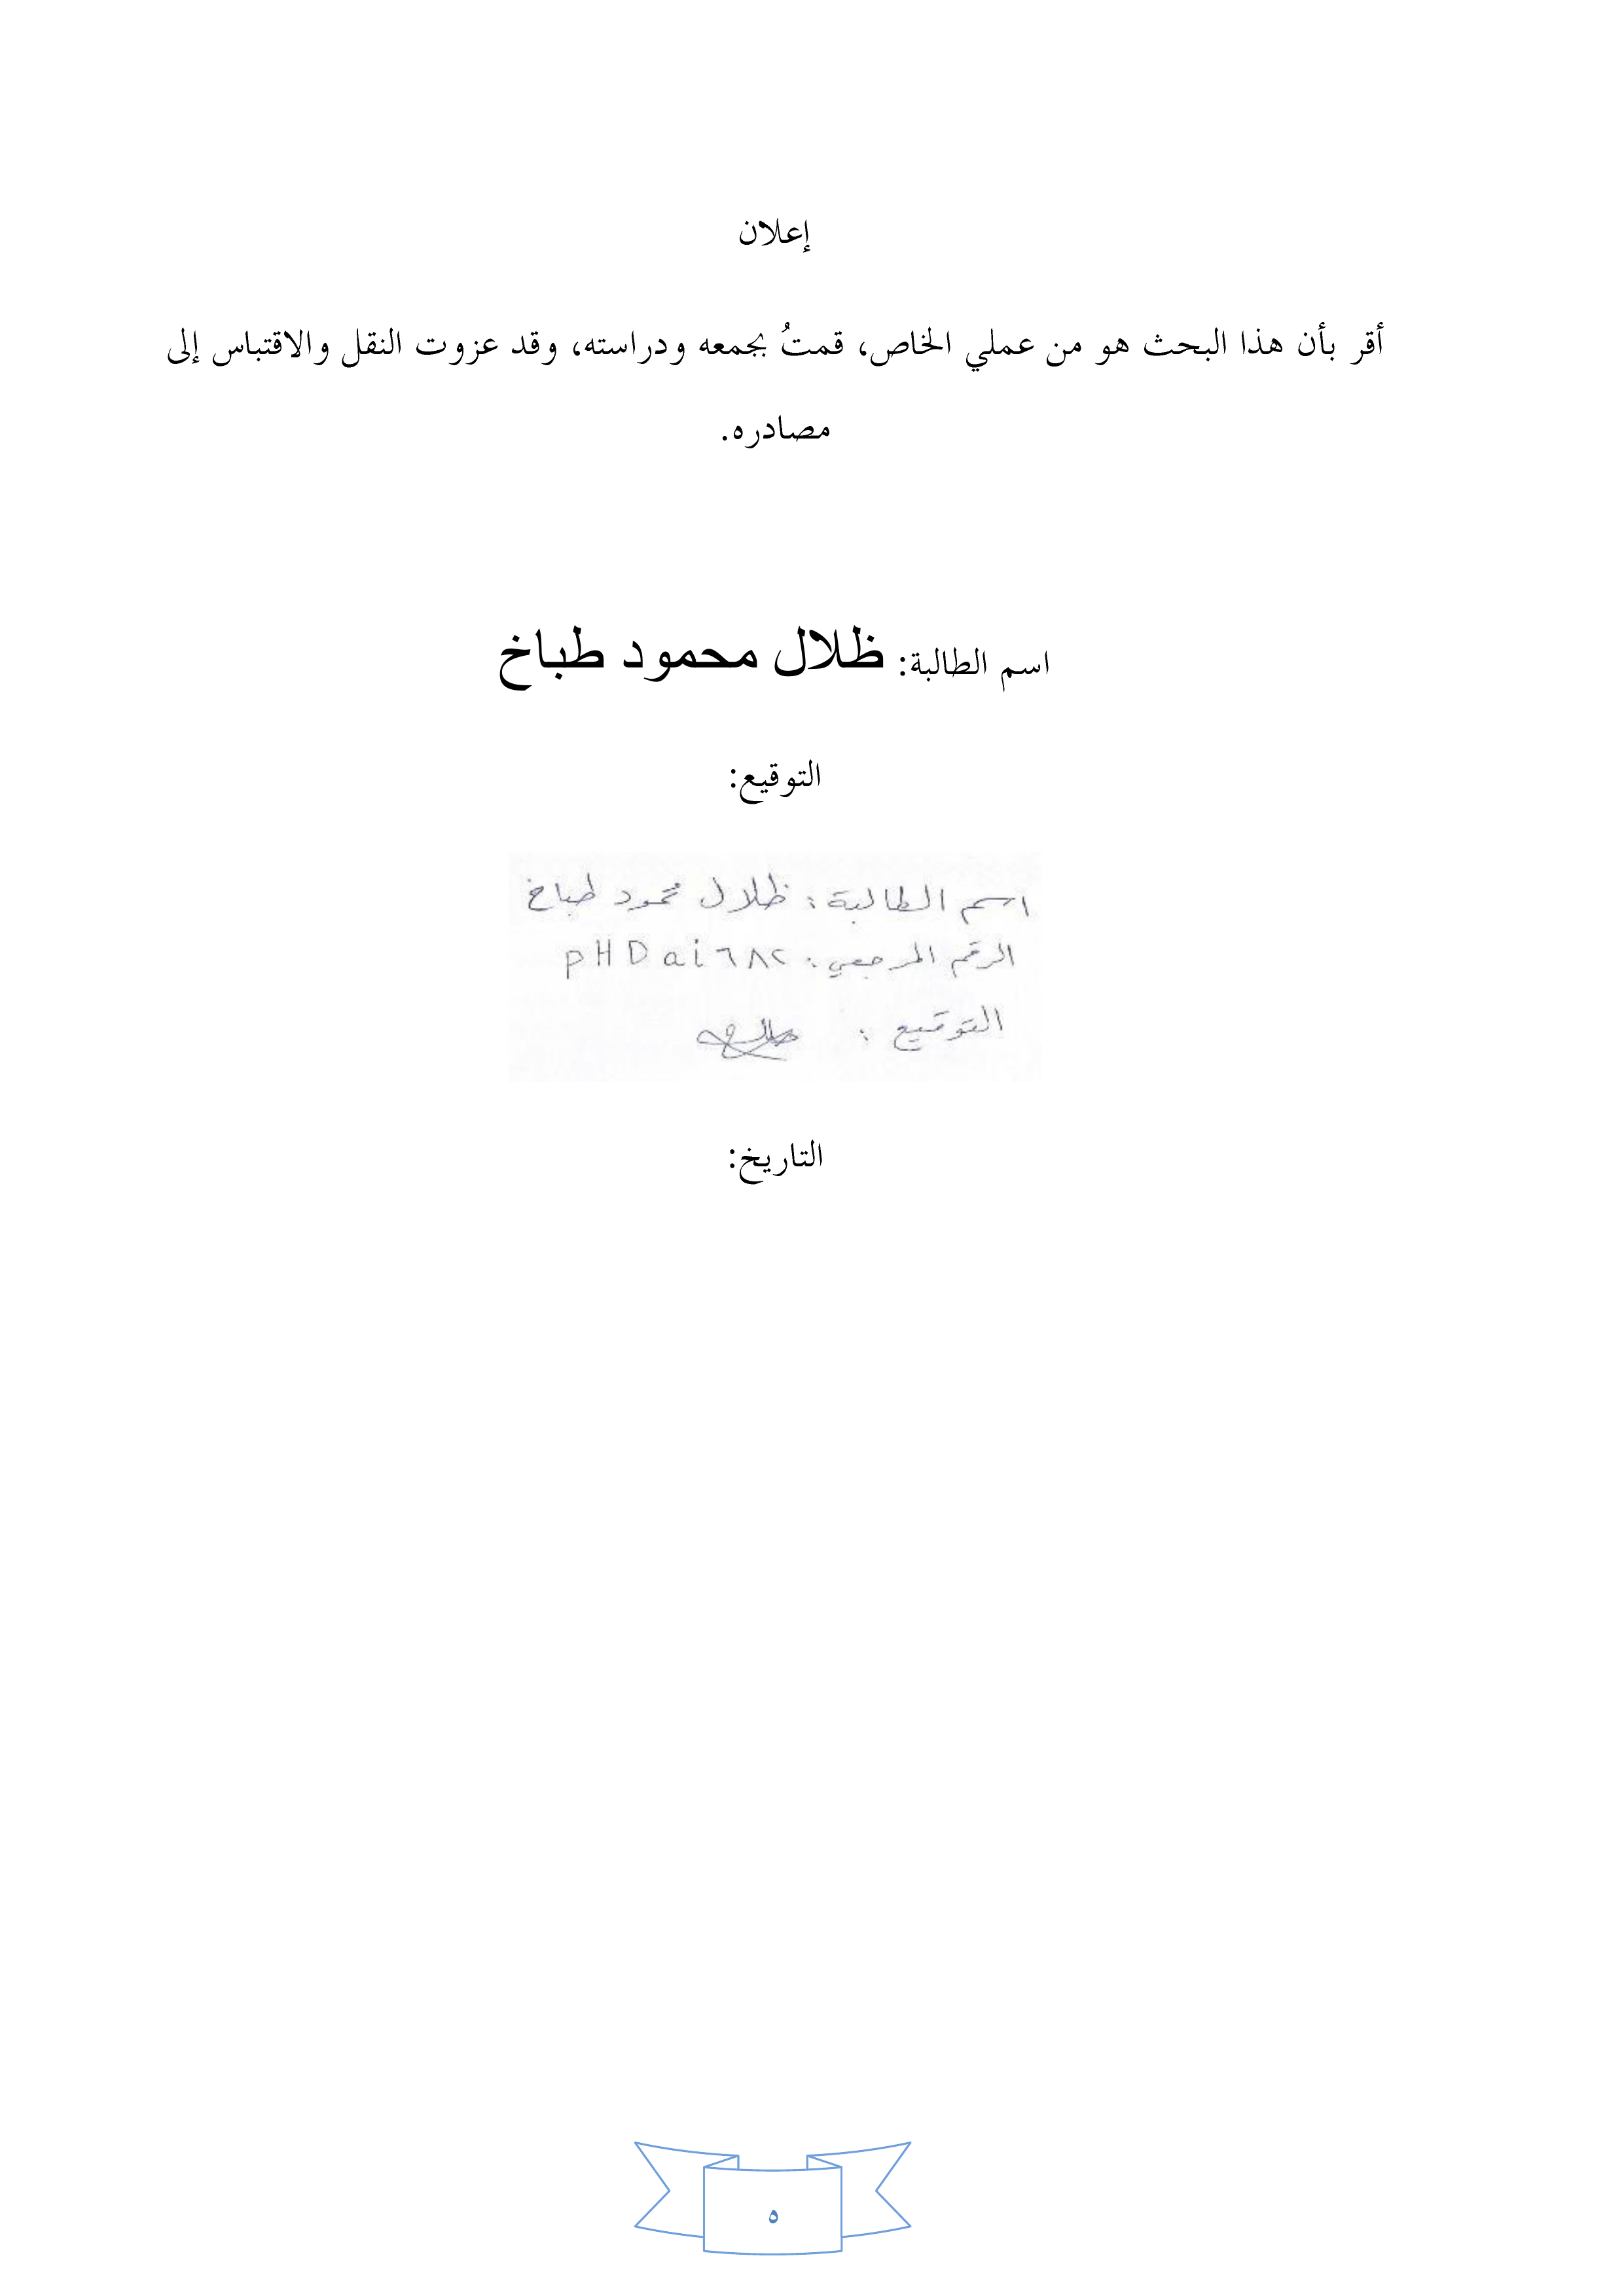 إعلان
أقر بأن هذا البحث هو من عملي الخاص، قمتُ بجمعه ودراسته، وقد عزوت النقل والاقتباس إلى
مصادره.
اسم الطالبة: ظلال محمود طباخ
التوقيع:
اسم الطالبة: ظلال محمود طباخ
الرقم المرجعي: pHDai٦٨٢
التوقيع:
التاريخ:
٥